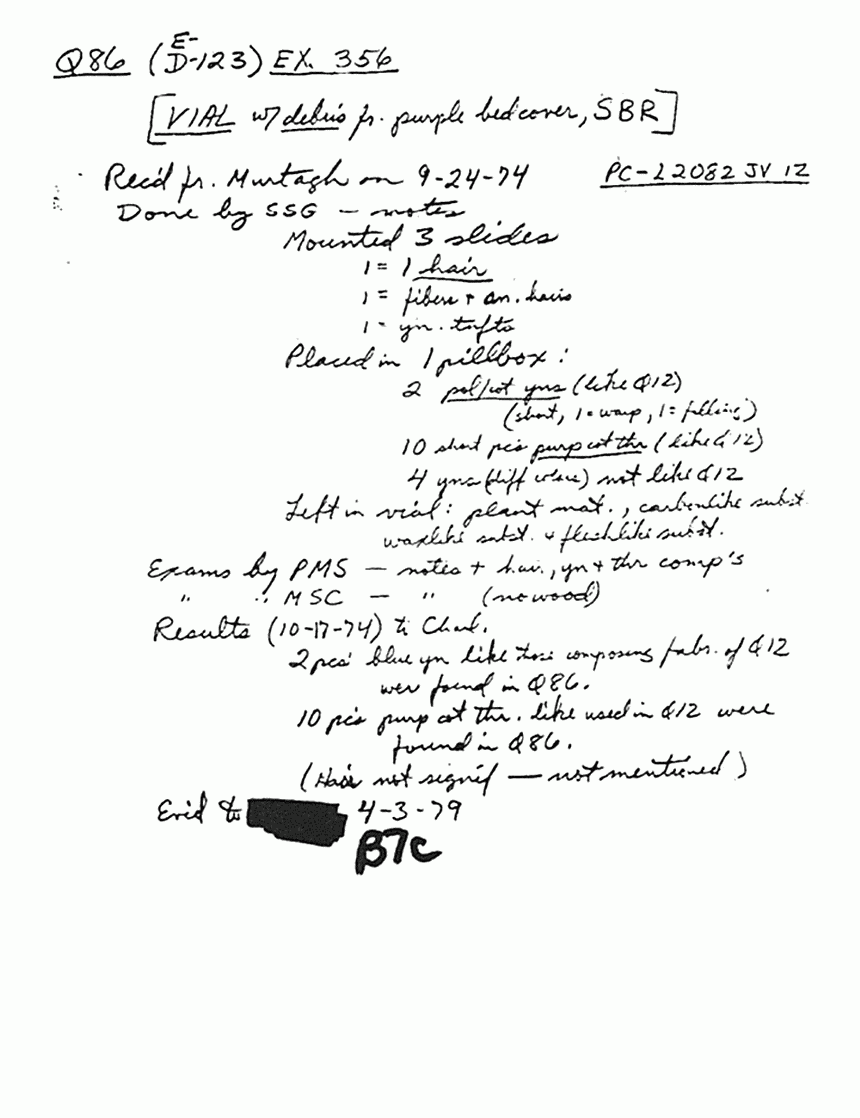 Q86 (D-123) EX. 356
E-
[VIAL w/ debris fr. purple bedcover, SBR]
Rec'd fr. Murtagh on 9-24-74 PC-L2082 JV 1Z
Done by SSG — notes
Mounted 3 slides
1 = 1 hair
1 = fibers + an. hairs
1 - yn. tufts
Placed in 1 pillbox :
2 pol/cot yns (like Q12)
(short, 1 = warp, 1 = filling)
10 short pcs purp cot thr (like Q12)
4 yns (diff colors) not like Q12
Left in vial : plant mat., carbonlike subst.
waxlike subst. + fleshlike subst.
Exams by PMS — notes + hair, yn + thr comp's
" " MSC — " (no wood)
Results (10-17-74) to Charl.
2 pcs blue yn like those composing fabr. of Q12
were found in Q86.
10 pcs purp cot thr. like used in Q12 were
found in Q86.
(Hairs not signif — not mentioned)
Evid to 4-3-79
B7C